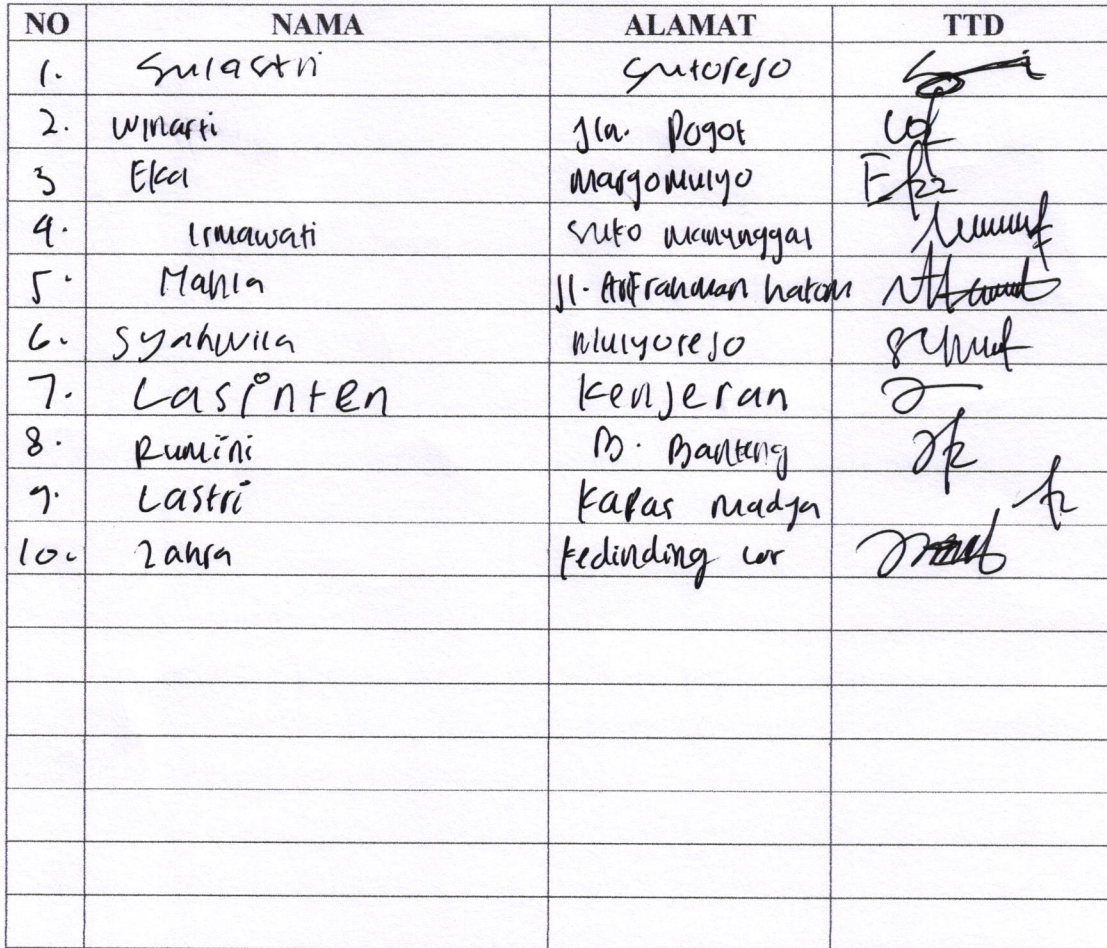 NO NAMA ALAMAT TTD
1. Sulastri Sutorejo
2. Winarti Jln. Pogot
3 Eka Margomulyo
4. Irmawati Suko Manunggal
5. Mahla Jl. Arif rahman hakim
6. Syahwila Mulyorejo
7. Lasinten Kenjeran
8. Rumini B. Banteng
9. Lastri Kapas Madya
10. Zahra Kedinding Lor